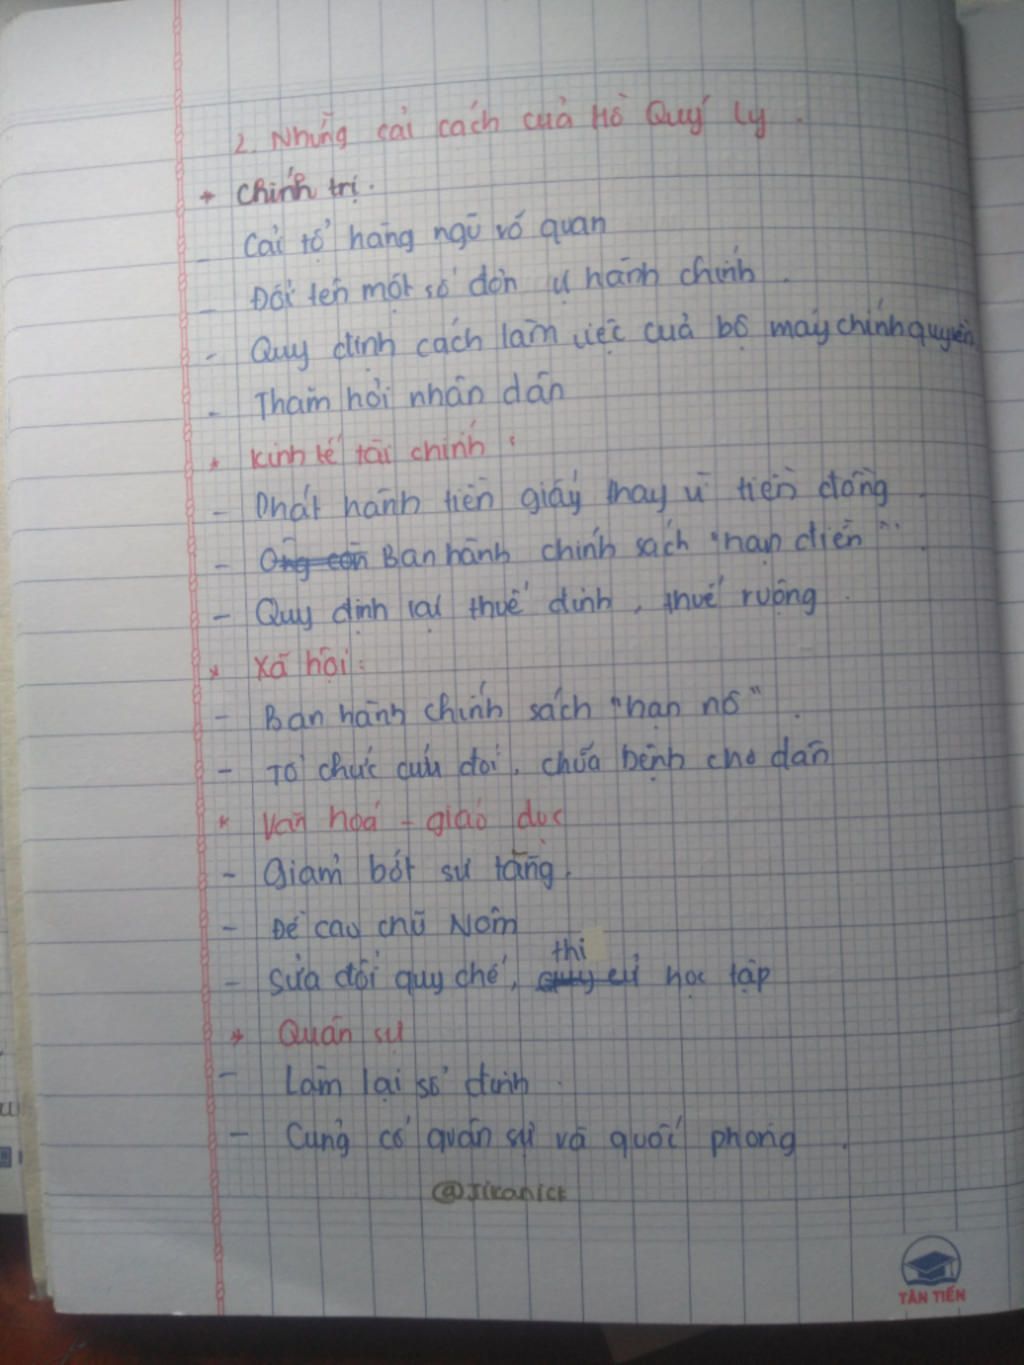 2. Những cải cách của Hồ Quý Ly.
* Chính trị.
- Cải tổ hàng ngũ võ quan
- Đổi tên một số đơn vị hành chính.
- Quy định cách làm việc của bộ máy chính quyền
- Thăm hỏi nhân dân
* Kinh tế tài chính:
- Phát hành tiền giấy thay vì tiền đồng.
- Ông còn Ban hành chính sách "hạn điền".
- Quy định lại thuế đinh, thuế ruộng.
* Xã hội:
- Ban hành chính sách "hạn nô".
- Tổ chức cứu đói, chữa bệnh cho dân
* Văn hoá - giáo dục
- Giảm bớt sư tăng.
- Đề cao chữ Nôm
thi
- Sửa đổi quy chế, quy cử học tập
* Quân sự
- Làm lại sổ đinh.
- Củng cố quân sự và quốc phòng.
@Jikanick
TÂN TIẾN